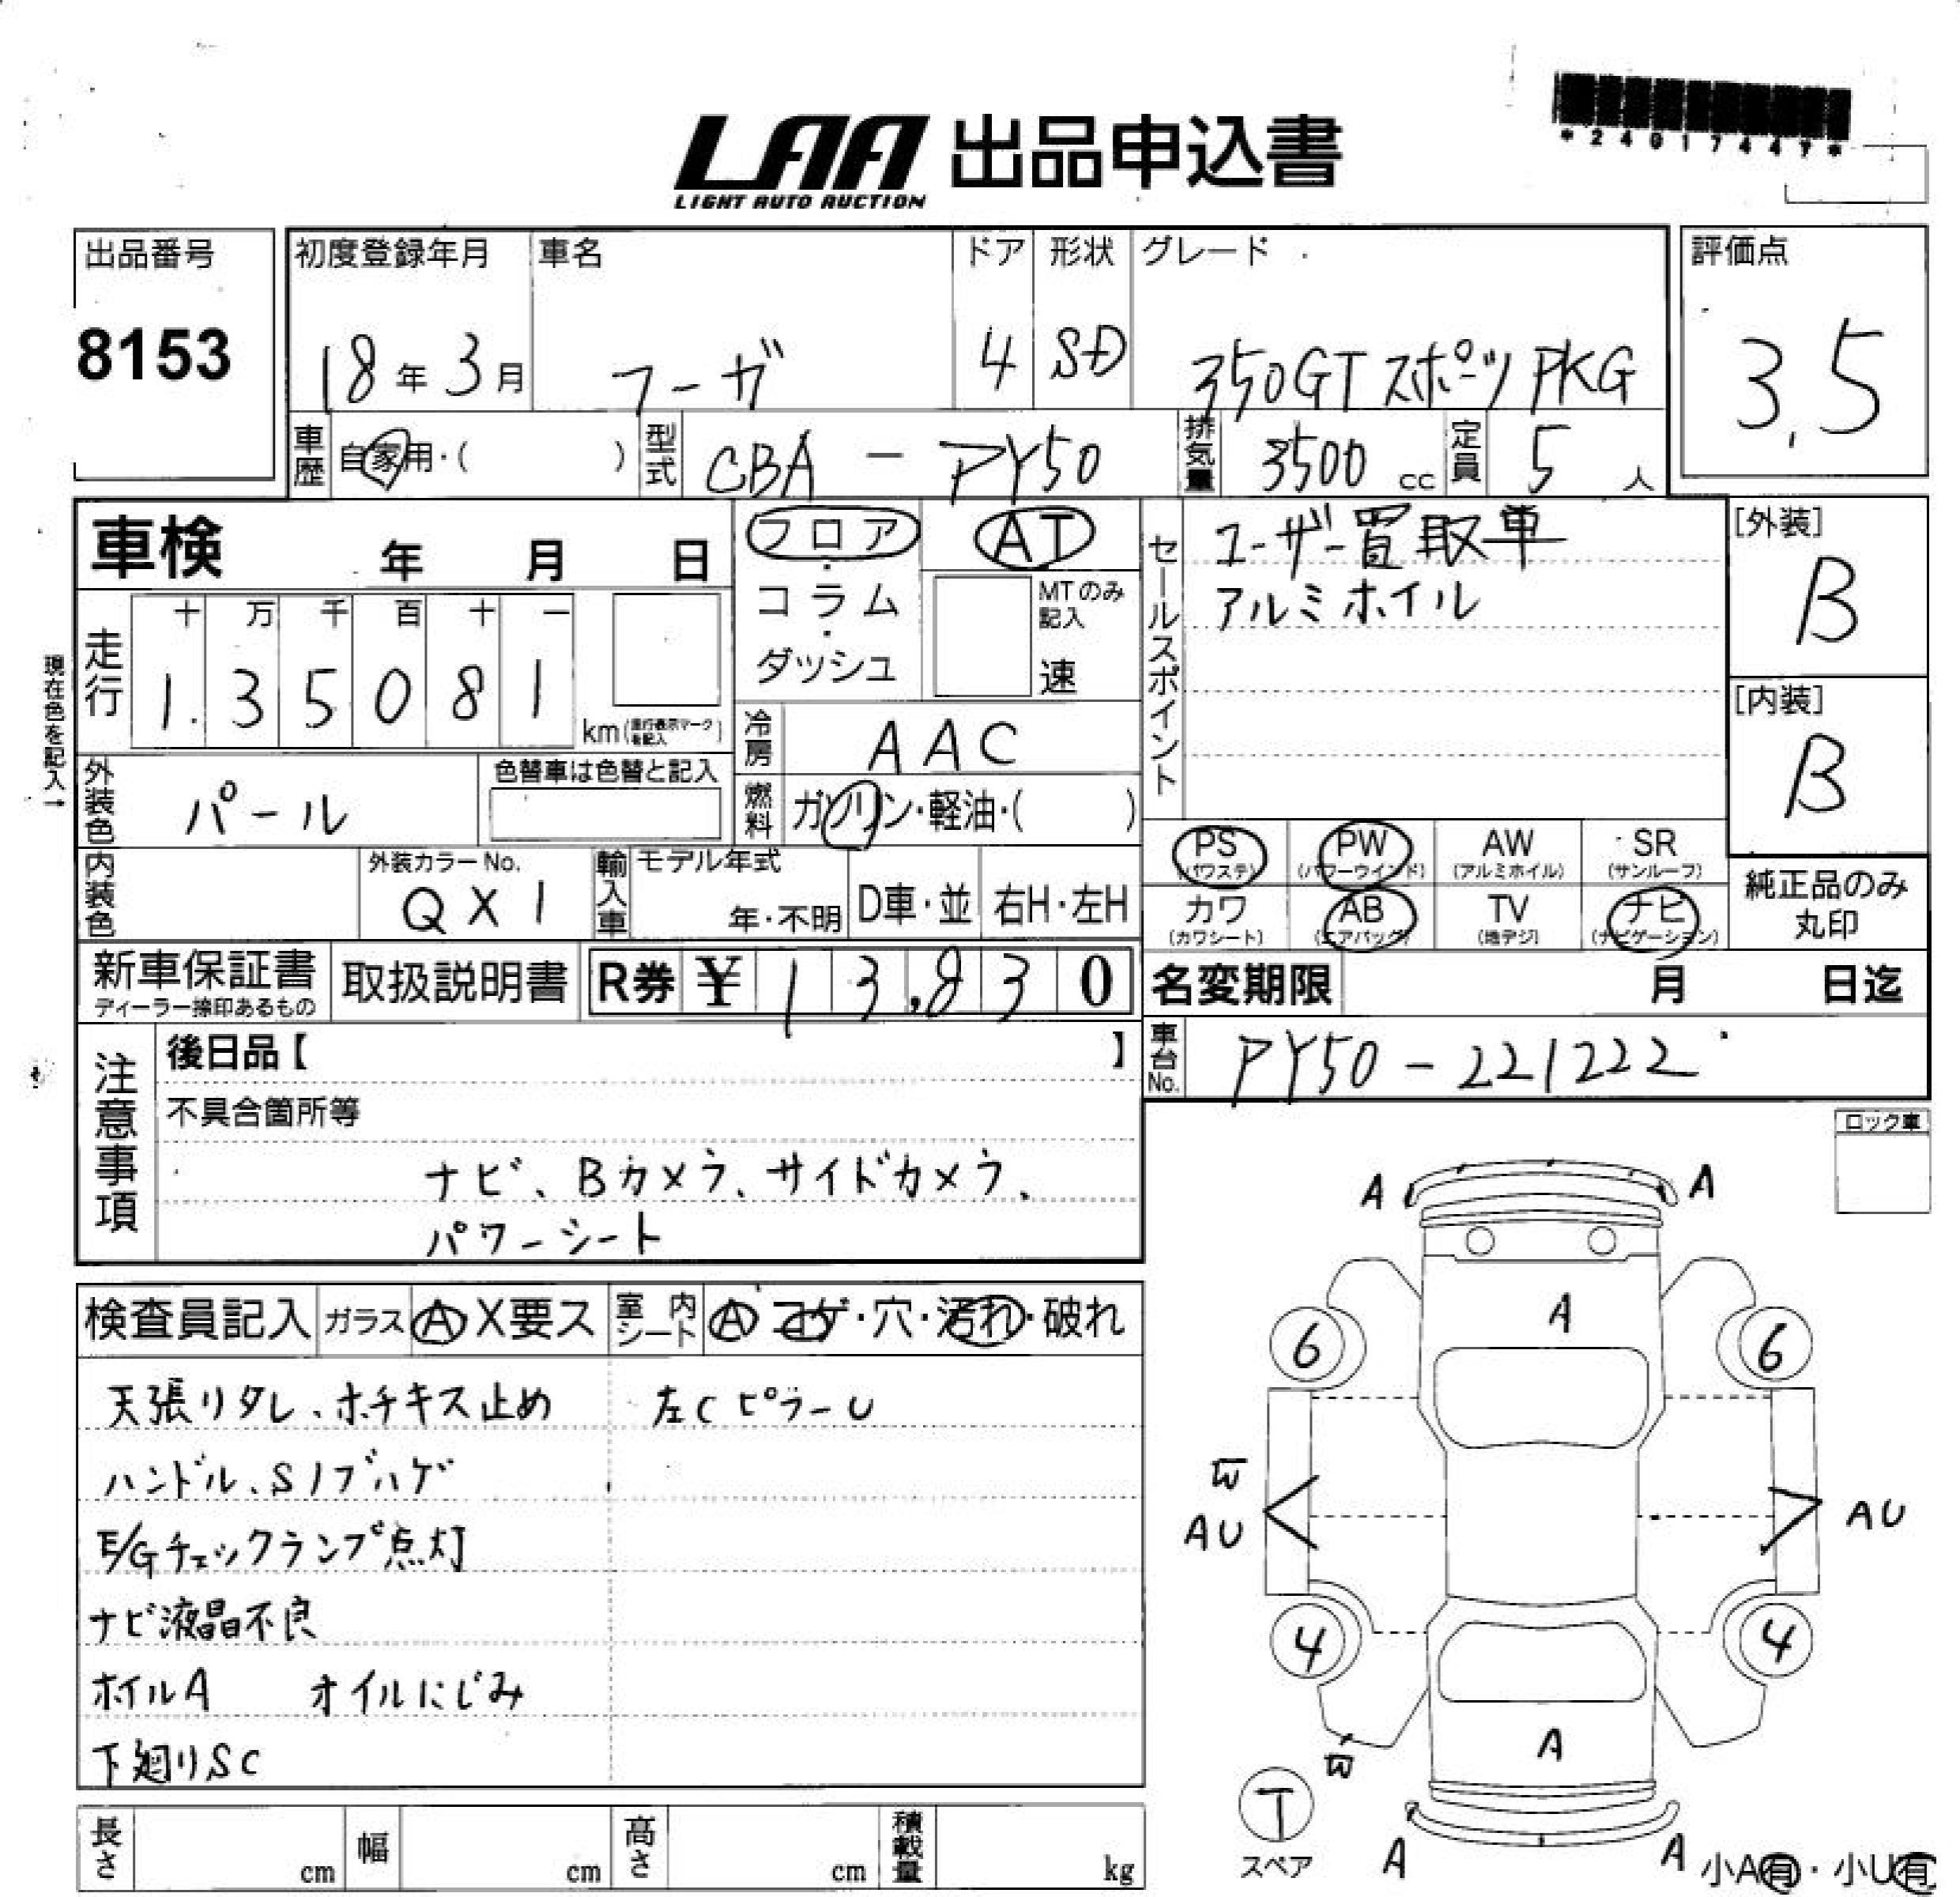 *24017447*
LAA 出品申込書
LIGHT AUTO AUCTION
出品番号
8153
初度登録年月
18年3月
車名
フーガ
ドア
4
形状
SD
グレード
350GTスポーツPKG
評価点
3.5
車歴
自家用・( )
型式
CBA - PY50
排気量
3500 cc
定員
5 人
車検 年 月 日
フロア・コラム・ダッシュ
AT
MTのみ記入
速
セールスポイント
ユーザー買取車
アルミホイル
[外装]
B
[内装]
B
現在色を記入→
走行
十 万 千 百 十 一
1 3 5 0 8 1
km(走行表示マークを記入)
冷房
AAC
外装色
パール
色替車は色替と記入
燃料
ガソリン・軽油・( )
PS (パワステ)
PW (パワーウインド)
AW (アルミホイル)
SR (サンルーフ)
カワ (カワシート)
AB (エアバッグ)
TV (地デジ)
ナビ (ナビゲーション)
純正品のみ丸印
内装色
外装カラーNo.
QX1
輸入車
モデル年式
年・不明
D車・並
右H・左H
新車保証書
ディーラー捺印あるもの
取扱説明書
R券 ¥ 13,830
名変期限 月 日迄
車台No.
PY50-221222
注意事項
後日品【 】
不具合箇所等
ナビ、Bカメラ、サイドカメラ、
パワーシート
ロック車
検査員記入
ガラス A X要ス
室内シート A コゲ・穴・汚れ・破れ
天張りタレ、ホチキス止め
左CピラーU
ハンドル、Sノブハゲ
E/Gチェックランプ点灯
ナビ液晶不良
ホイルA オイルにじみ
下廻りSC
A A
A
6 6
W
AU AU
4 4
A
W
T
スペア
A A
小A有・小U有
長さ cm
幅 cm
高さ cm
積載量 kg